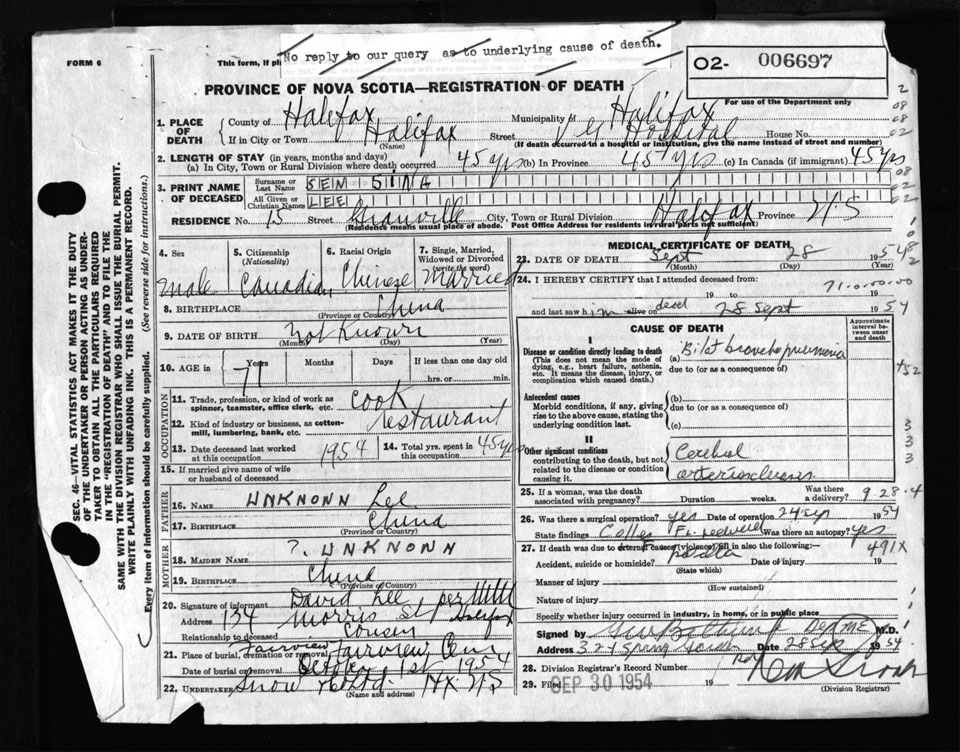 No reply to our query as to underlying cause of death.
FORM 6
This form, if
O2- 006697
PROVINCE OF NOVA SCOTIA—REGISTRATION OF DEATH
For use of the Department only
1. PLACE OF DEATH
County of Halifax Municipality of Halifax
If in City or Town Halifax (Name) Street V G Hospital House No.
(If death occurred in a hospital or institution, give the name instead of street and number)
2. LENGTH OF STAY (in years, months and days)
(a) In City, Town or Rural Division where death occurred 45 yrs (b) In Province 45 yrs (c) In Canada (if immigrant) 45 yrs
3. PRINT NAME OF DECEASED
Surname or Last Name SEM SING
All Given or Christian Names LEE
RESIDENCE No. 15 Street Granville City, Town or Rural Division Halifax Province N.S
(Residence means usual place of abode. Post Office Address for residents in rural parts not sufficient)
4. Sex
male
5. Citizenship (Nationality)
Canadian
6. Racial Origin
Chinese
7. Single, Married, Widowed or Divorced (write the word)
Married
8. BIRTHPLACE China
(Province or Country)
9. DATE OF BIRTH Not Known
(Month) (Day) (Year)
10. AGE in 71 Years Months Days If less than one day old
hrs. or min.
OCCUPATION
11. Trade, profession or kind of work as spinner, teamster, office clerk, etc. cook
12. Kind of industry or business, as cotton-mill, lumbering, bank, etc. restaurant
13. Date deceased last worked at this occupation 1954
14. Total yrs. spent in this occupation 45 yrs
15. If married give name of wife or husband of deceased
FATHER
16. Name UNKNOWN Lee
17. Birthplace China
(Province or Country)
MOTHER
18. Maiden Name ?. UNKNOWN
19. Birthplace China
(Province or Country)
20. Signature of informant David Lee per
Address 134 Morris St Halifax
Relationship to deceased cousin
21. Place of burial, cremation or removal Fairview Fairview Cem
Date of burial or removal October 1st 1954
22. Undertaker Snow & Co Ltd. Hx. N.S
(Name and address)
MEDICAL CERTIFICATE OF DEATH
23. DATE OF DEATH Sept 28 1954
(Month) (Day) (Year)
24. I HEREBY CERTIFY that I attended deceased from
19 to 19
and last saw him alive on dead 28 Sept 1954
71.0.00.00
CAUSE OF DEATH
Approximate interval between onset and death
I
Disease or condition directly leading to death
(This does not mean the mode of dying, e.g., heart failure, asthenia, etc. It means the disease, injury, or complication which caused death.)
(a) Bilat bronchopneumonia
due to (or as a consequence of)
Antecedent causes
Morbid conditions, if any, giving rise to the above cause, stating the underlying condition last.
(b)
due to (or as a consequence of)
(c)
II
Other significant conditions
contributing to the death, but not related to the disease or condition causing it.
Cerebral
arteriosclerosis
25. If a woman, was the death associated with pregnancy? Duration weeks. Was there a delivery?
9.28.4
26. Was there a surgical operation? yes Date of operation 24 Sep 1954
State findings Colles Fr. reduced Was there an autopsy? yes
27. If death was due to external causes (violence) fill in also the following:—
491X
Accident, suicide or homicide? Date of injury 19
(State which)
Manner of injury
(How sustained)
Nature of injury
Specify whether injury occurred in industry, in home, or in public place
Signed by M.D.
Address 324 Spring Garden Date 28 Sep 1954
28. Division Registrar's Record Number
29. Filed SEP 30 1954 19
(Division Registrar)
SEC. 46—VITAL STATISTICS ACT MAKES IT THE DUTY OF THE UNDERTAKER OR PERSON ACTING AS UNDERTAKER TO OBTAIN ALL THE PARTICULARS REQUIRED IN THE "REGISTRATION OF DEATH" AND TO FILE THE SAME WITH THE DIVISION REGISTRAR WHO SHALL ISSUE THE BURIAL PERMIT.
WRITE PLAINLY WITH UNFADING INK. THIS IS A PERMANENT RECORD.
Every item of information should be carefully supplied. (See reverse side for instructions.)